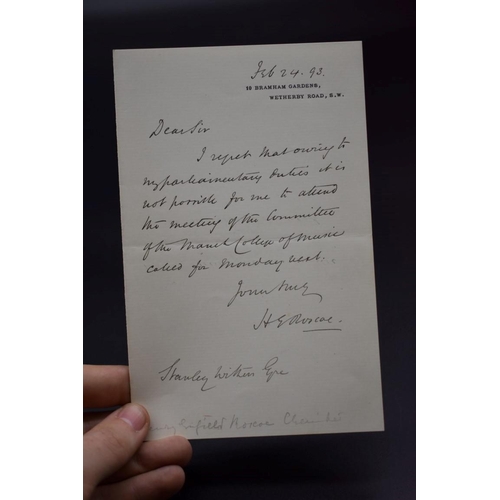 Feb 24. 93.
10 BRAMHAM GARDENS,
WETHERBY ROAD, S.W.
Dear Sir
I regret that owing to
my parliamentary duties it is
not possible for me to attend
the meeting of the Committee
of the Manch College of Music
called for Monday next.
Yours truly
H E Roscoe.
Stanley Withers Esqre
Enfield Roscoe Chemist